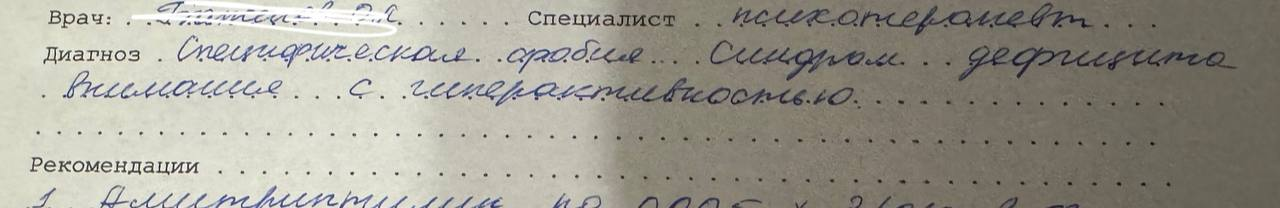 Врач: . . . . . . Специалист . психотерапевт. . .
Диагноз . Специфическая фобия. . . Синдром. . . дефицита
. внимания . . . с . гиперактивностью. . . . . . . . . . . . .
Рекомендации . . . . . . . . . . . . . . . . . . . . . . . . . . . . . .
1. Амитриптилин по